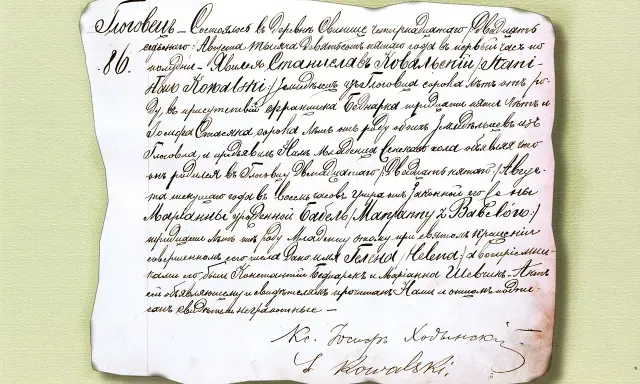 Гловець – Состоялось въ деревнѣ Свинице четырнадцатаго /двадцать
86. седьмого/ Августа тысяча девятьсотъ пятаго года въ первый часъ по
полудни – Явился Станиславъ Ковальскій /Stani-
sław Kowalski/ земледѣлецъ изъ Гловца сорока лѣтъ отъ ро-
ду, въ присутствіи Франциска Беднарка тридцати пяти лѣтъ и
Іосифа Стасяка сорока лѣтъ отъ роду обоихъ земледѣльцевъ изъ
и предъявилъ Намъ младенца женского пола объявляя что
онъ родился въ двѣнадцатаго /двадцать пятаго/ Авгус-
та текущаго года въ восемь часовъ утра отъ законной его же ны
Маріанны урожденной Бабель /Maryanny z Bablów/
тридцати лѣтъ отъ роду Младенцу этому при святомъ крещеніи
совершенномъ сего числа дано имя Гелена /Helena/ а воспріемни-
ками его были Константій Беднарек и Маріанна – Актъ
сей объявляющему и свидѣтелямъ прочитанъ Нами и подпи-
санъ свидѣтели неграмотные –
Кс. Іосифъ
S Kowalski.